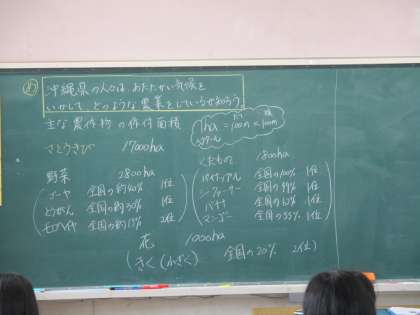 め
沖縄県の人々は、あたたかい気候を
いかして、どのような農業をしているか知ろう。
主な農作物の作付面積
1ha=100m×100m
ヘクタール
さとうきび 17000ha
野菜 2800ha
ゴーヤ 全国の約40% 1位
とうがん 全国の約30% 1位
全国の約17% 2位
くだもの 1800ha
パイナップル 全国の100% 1位
シークヮーサー 全国の99% 1位
バナナ 全国の 1位
マンゴー 全国の55% 1位
花 1000ha
きく(小ぎく) 全国の20% 2位